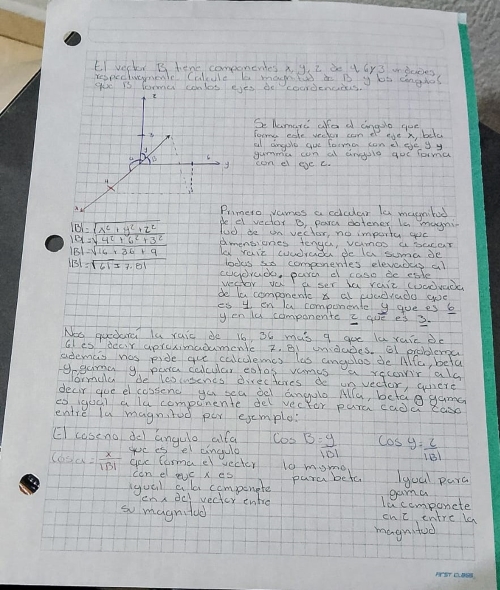 El vector B, tiene componentes x, y, z de 4, 6 y 3 unidades
respectivamente. Calcule la magnitud de B y los ángulos
que B forma con los ejes de coordenadas.
z
3
6
y
4
x
Se llamará alfa el ángulo que
forma este vector con el eje x, beta
al ángulo que forma con el eje y y
gamma con al ángulo que forma
con el eje z.
|B|=√x²+y²+z²
|B|=√4²+6²+3²
|B|=√16+36+9
|B|=√61=7.81
Primero vamos a calcular la magnitud
de el vector B, para obtener la magni-
tud de un vector, no importa que
dimensiones tenga, vamos a sacar
la raíz cuadrada de la suma de
todos sus componentes elevados al
cuadrado, para el caso de este
vector va a ser la raíz cuadrada
de la componente x al cuadrado que
es 4, en la componente y que es 6
y en la componente z que es 3.
Nos quedará la raíz de 16, 36 más 9 que la raíz de
61 es decir aproximadamente 7.81 unidades. El problema
además nos pide que calculemos los ángulos de Alfa, beta
y gama y, para calcular estos vamos a recurrir a la
fórmula de los cosenos directores de un vector, quiere
decir que el coseno ya sea del ángulo Alfa, beta o gama
es igual a la componente del vector para cada caso
entre la magnitud por ejemplo:
El coseno del ángulo alfa
que es el ángulo
Cosα = x/|B| que forma el vector
con el eje x es
igual a la componente
en x del vector entre
su magnitud
Cos B = y/|B|
lo mismo
para beta
Cos γ = z/|B|
Igual para
gama
la componete
en z entre la
magnitud
FIRST CLASS